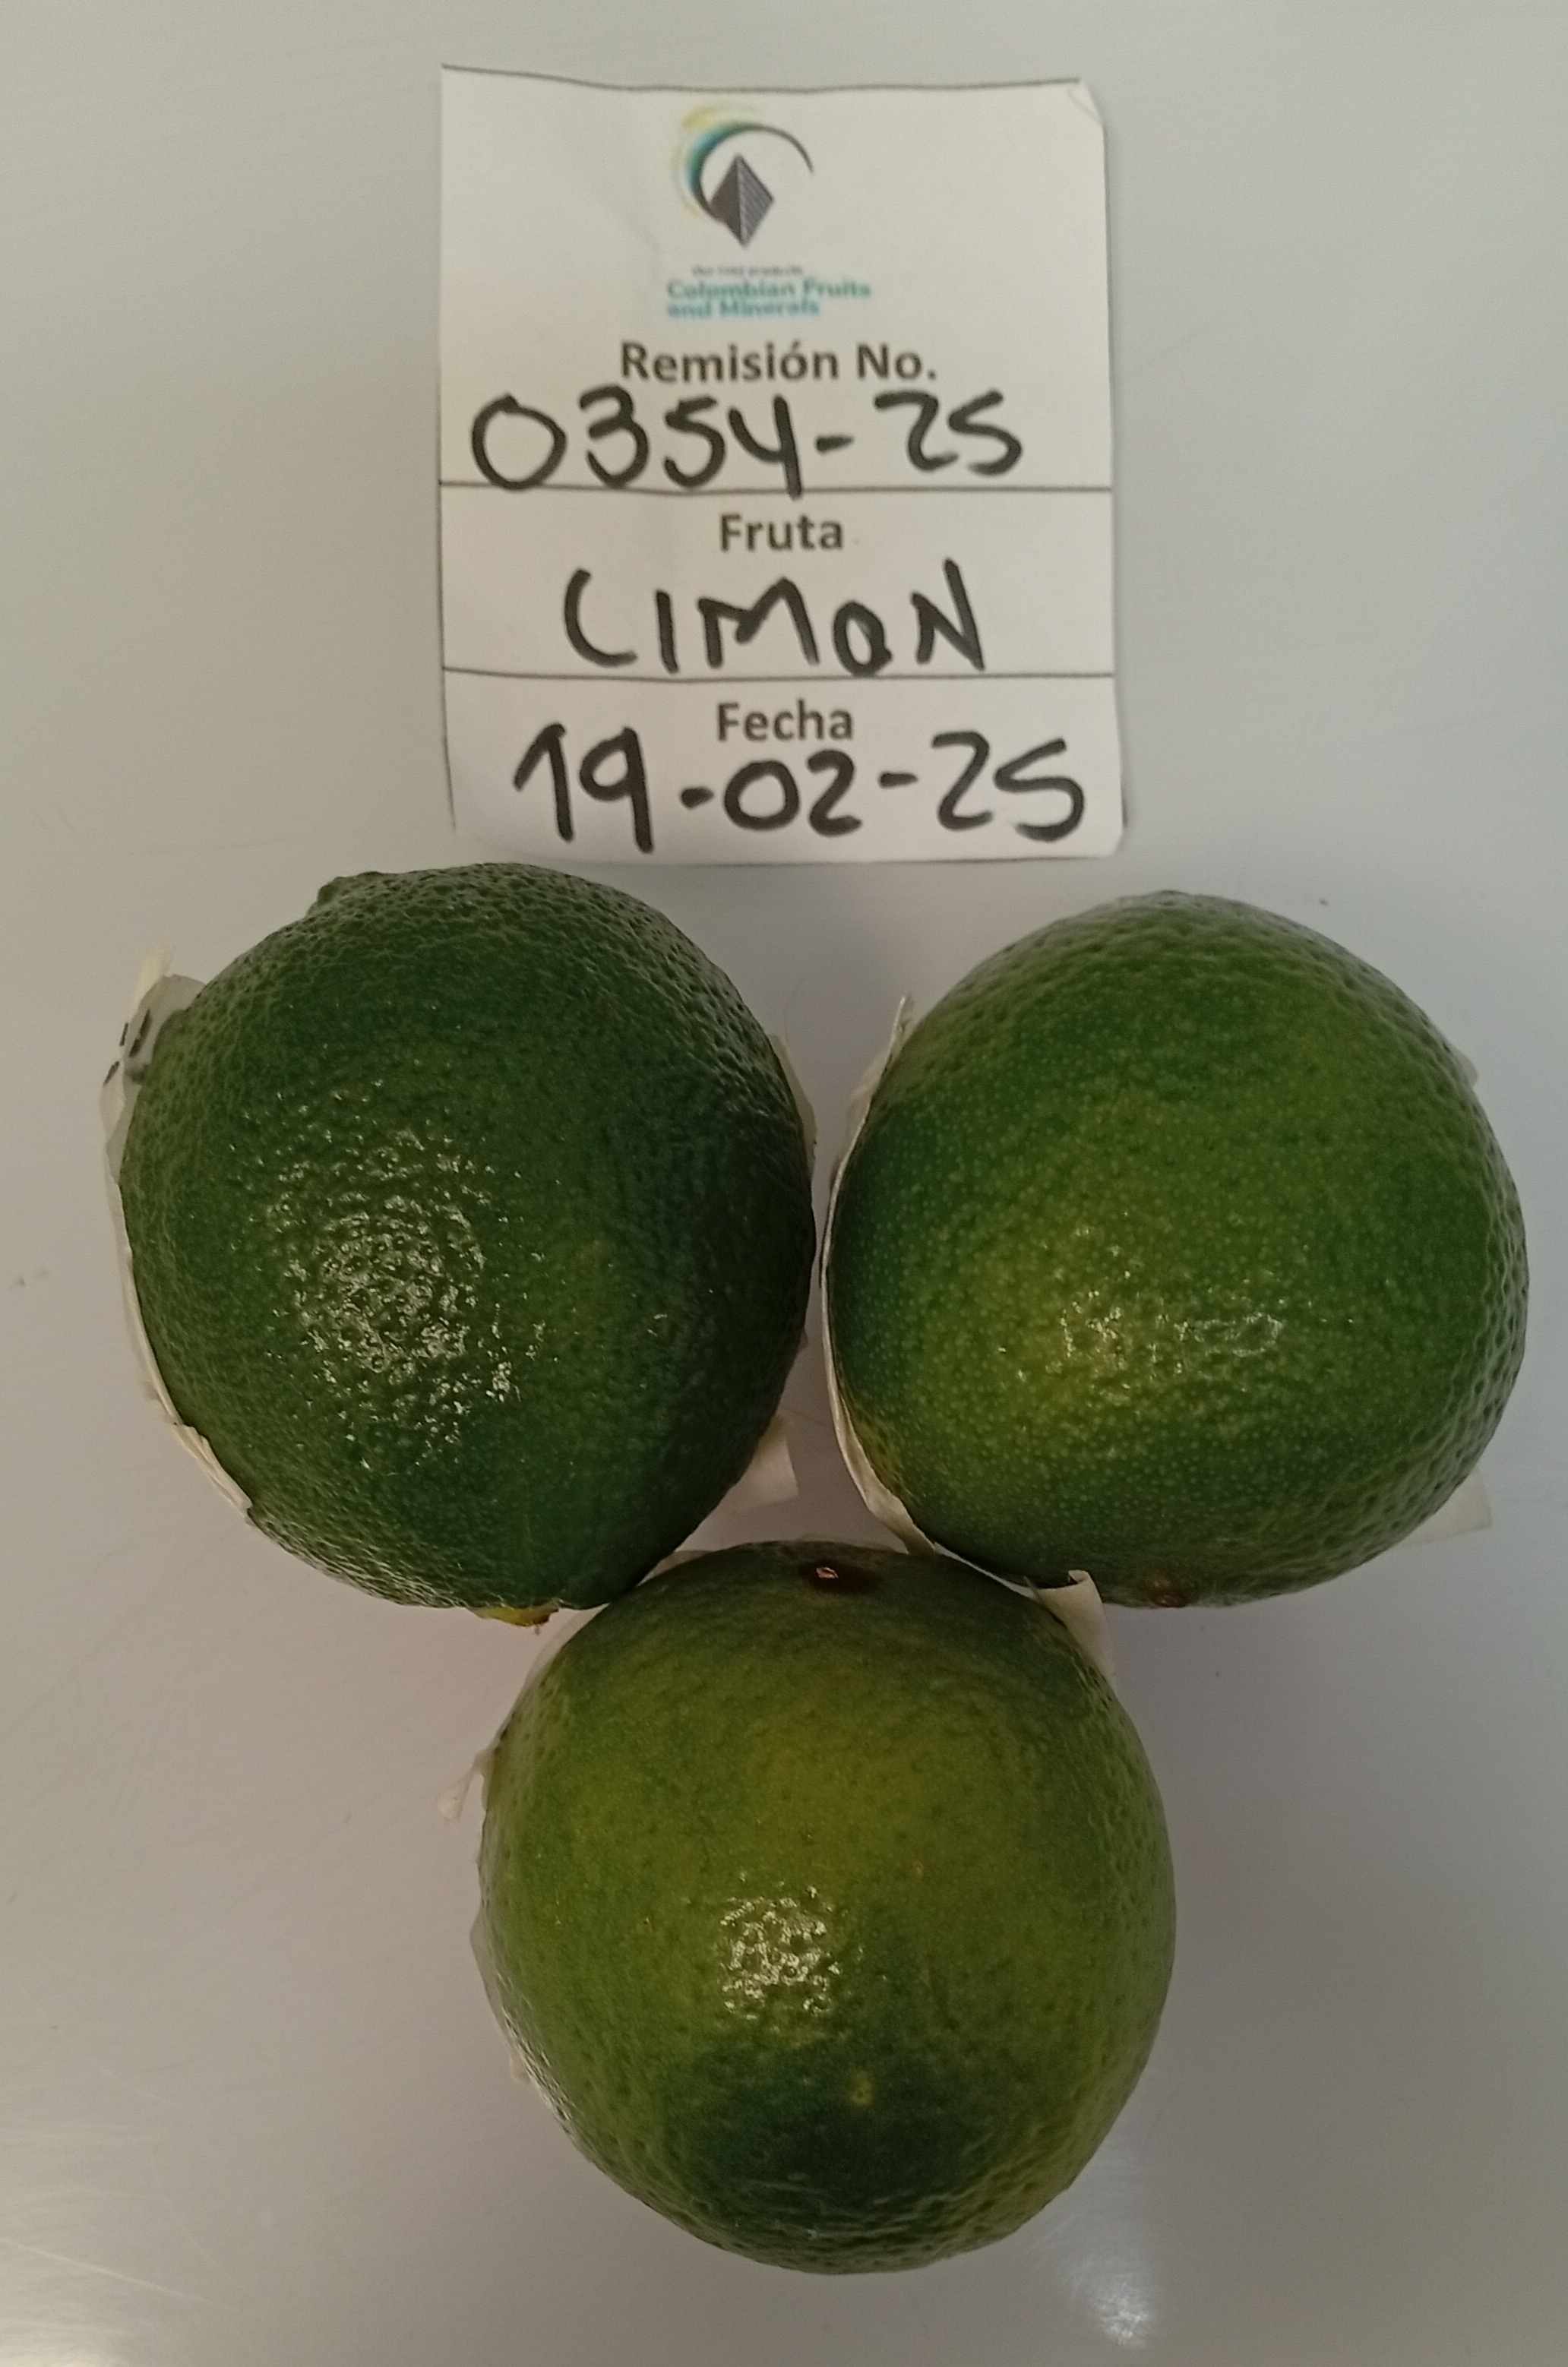 Colombian Fruits
and Minerals
Remisión No.
0354-25
Fruta
LIMON
Fecha
19-02-25